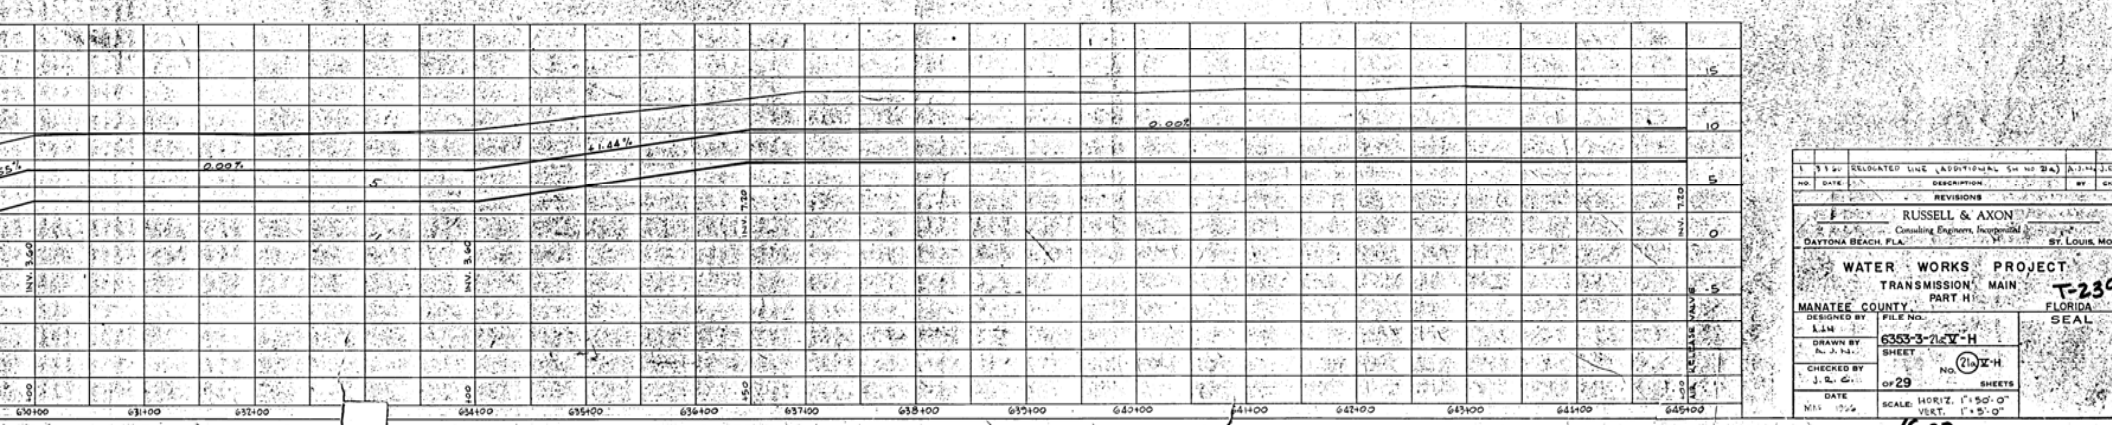 15
10
5
0
-5
0.00%
+1.44%
0.00%
5
INV. 3.60
INV. 3.60
INV. 7.20
INV. 7.20
AIR RELEASE VALVE
+00
+00
+50
+00
630+00
631+00
632+00
634+00
635+00
636+00
637+00
638+00
639+00
640+00
641+00
642+00
643+00
644+00
645+00
RELOCATED LINE (ADDITIONAL SH NO 21a)
NO. DATE DESCRIPTION BY
REVISIONS
RUSSELL & AXON
Consulting Engineers, Incorporated
DAYTONA BEACH, FLA. ST. LOUIS, MO
WATER WORKS PROJECT
TRANSMISSION MAIN
PART H
T-230
MANATEE COUNTY FLORIDA
DESIGNED BY
FILE NO.
6353-3-21aV-H
SEAL
DRAWN BY
A. J. N.
SHEET
NO. 21a V-H
CHECKED BY
OF 29 SHEETS
DATE
SCALE: HORIZ. 1"=50'-0"
VERT. 1"=5'-0"